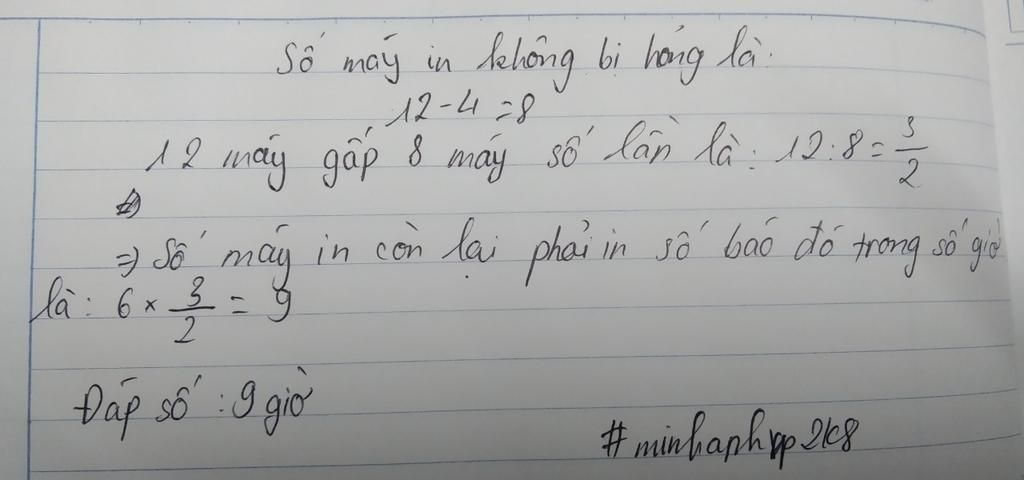 Số máy in không bị hỏng là:
12 - 4 = 8
12 máy gấp 8 máy số lần là: 12 : 8 = 3/2
=> Số máy in còn lại phải in số báo đó trong số giờ
là: 6 × 3/2 = 9
Đáp số : 9 giờ
#minhaphvp2k8